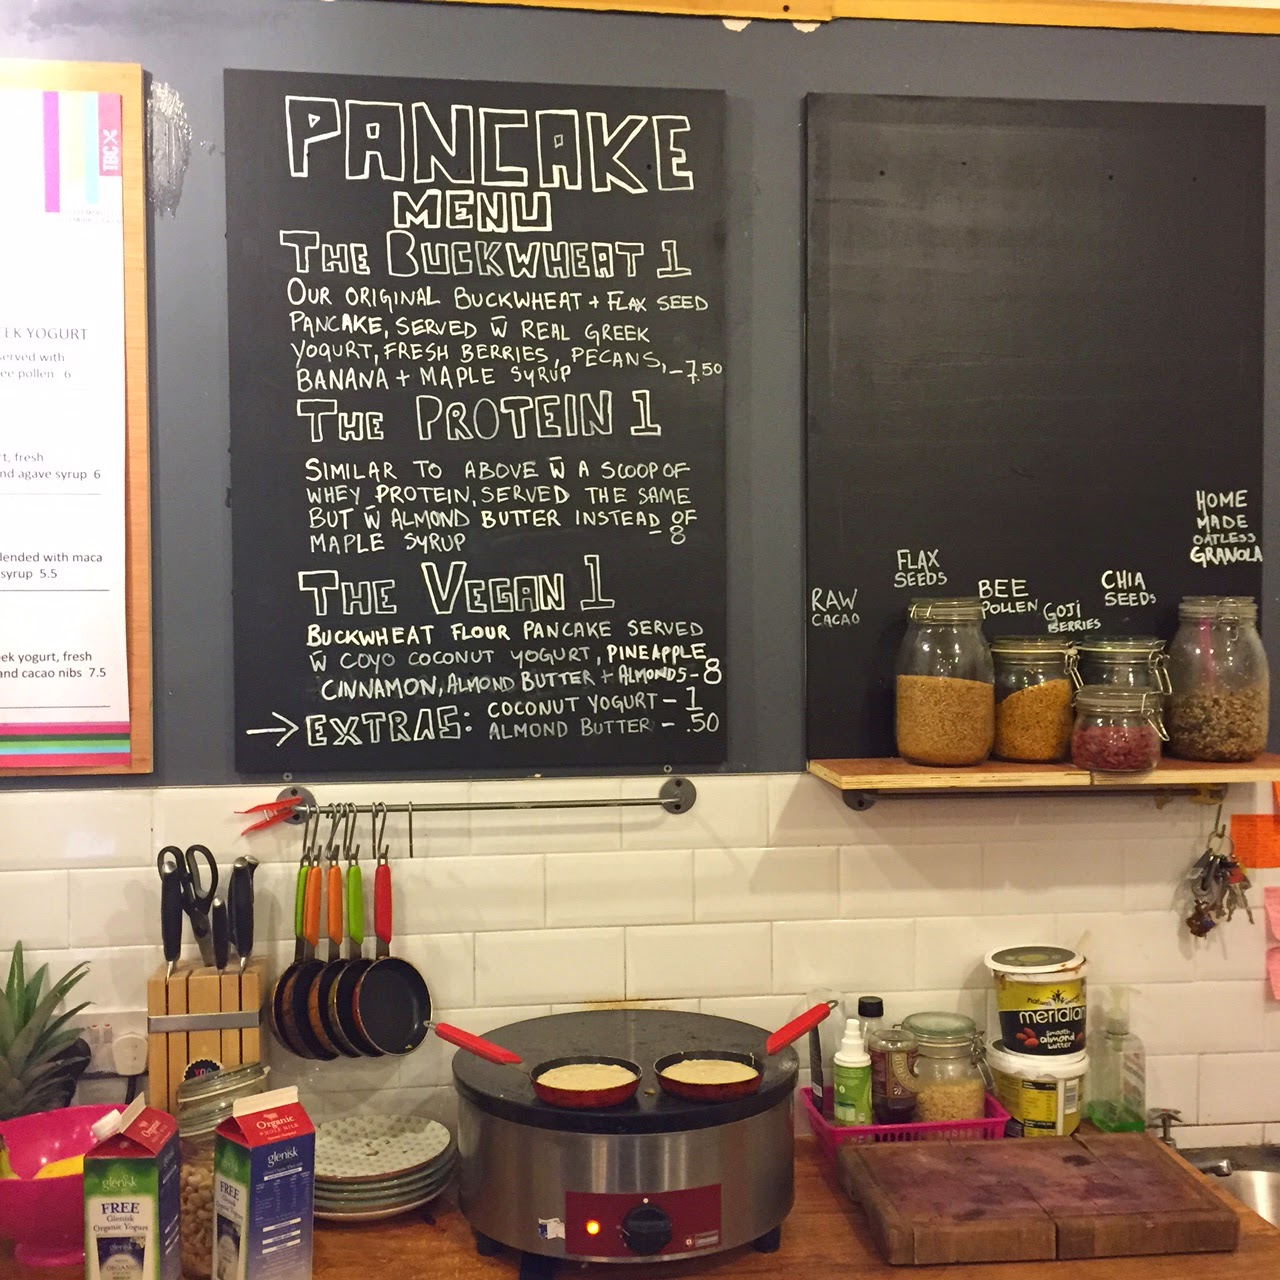 PANCAKE
MENU
THE BUCKWHEAT 1
OUR ORIGINAL BUCKWHEAT + FLAX SEED
PANCAKE, SERVED W̄ REAL GREEK
YOGURT, FRESH BERRIES, PECANS,
BANANA + MAPLE SYRUP -7.50
THE PROTEIN 1
SIMILAR TO ABOVE W̄ A SCOOP OF
WHEY PROTEIN, SERVED THE SAME
BUT W̄ ALMOND BUTTER INSTEAD OF
MAPLE SYRUP - 8
THE VEGAN 1
BUCKWHEAT FLOUR PANCAKE SERVED
W̄ COYO COCONUT YOGURT, PINEAPPLE,
CINNAMON, ALMOND BUTTER + ALMONDS - 8
→ EXTRAS: COCONUT YOGURT - 1
ALMOND BUTTER - .50
TBC
EEK YOGURT
served with
ee pollen 6
rt, fresh
nd agave syrup 6
lended with maca
syrup 5.5
eek yogurt, fresh
and cacao nibs 7.5
RAW
CACAO
FLAX
SEEDS
BEE
POLLEN
GOJI
BERRIES
CHIA
SEEDS
HOME
MADE
OATLESS
GRANOLA
meridian
smooth
almond
butter
Organic
glenisk
FREE
Glenisk
Organic Yogurt
Organic
WHOLE MILK
glenisk
FREE